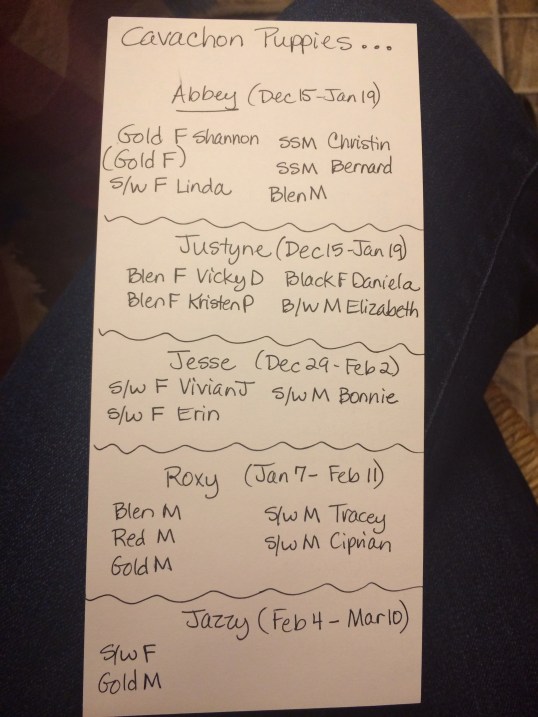 Cavachon Puppies...
Abbey (Dec 15-Jan 19)
Gold F Shannon SSM Christin
(Gold F) SSM Bernard
S/w F Linda Blen M
Justyne (Dec 15-Jan 19)
Blen F Vicky D Black F Daniela
Blen F Kristen P B/W M Elizabeth
Jesse (Dec 29-Feb 2)
S/w F Vivian J S/w M Bonnie
S/w F Erin
Roxy (Jan 7- Feb 11)
Blen M S/w M Tracey
Red M S/w M Ciprian
Gold M
Jazzy (Feb 4 - Mar 10)
S/w F
Gold M